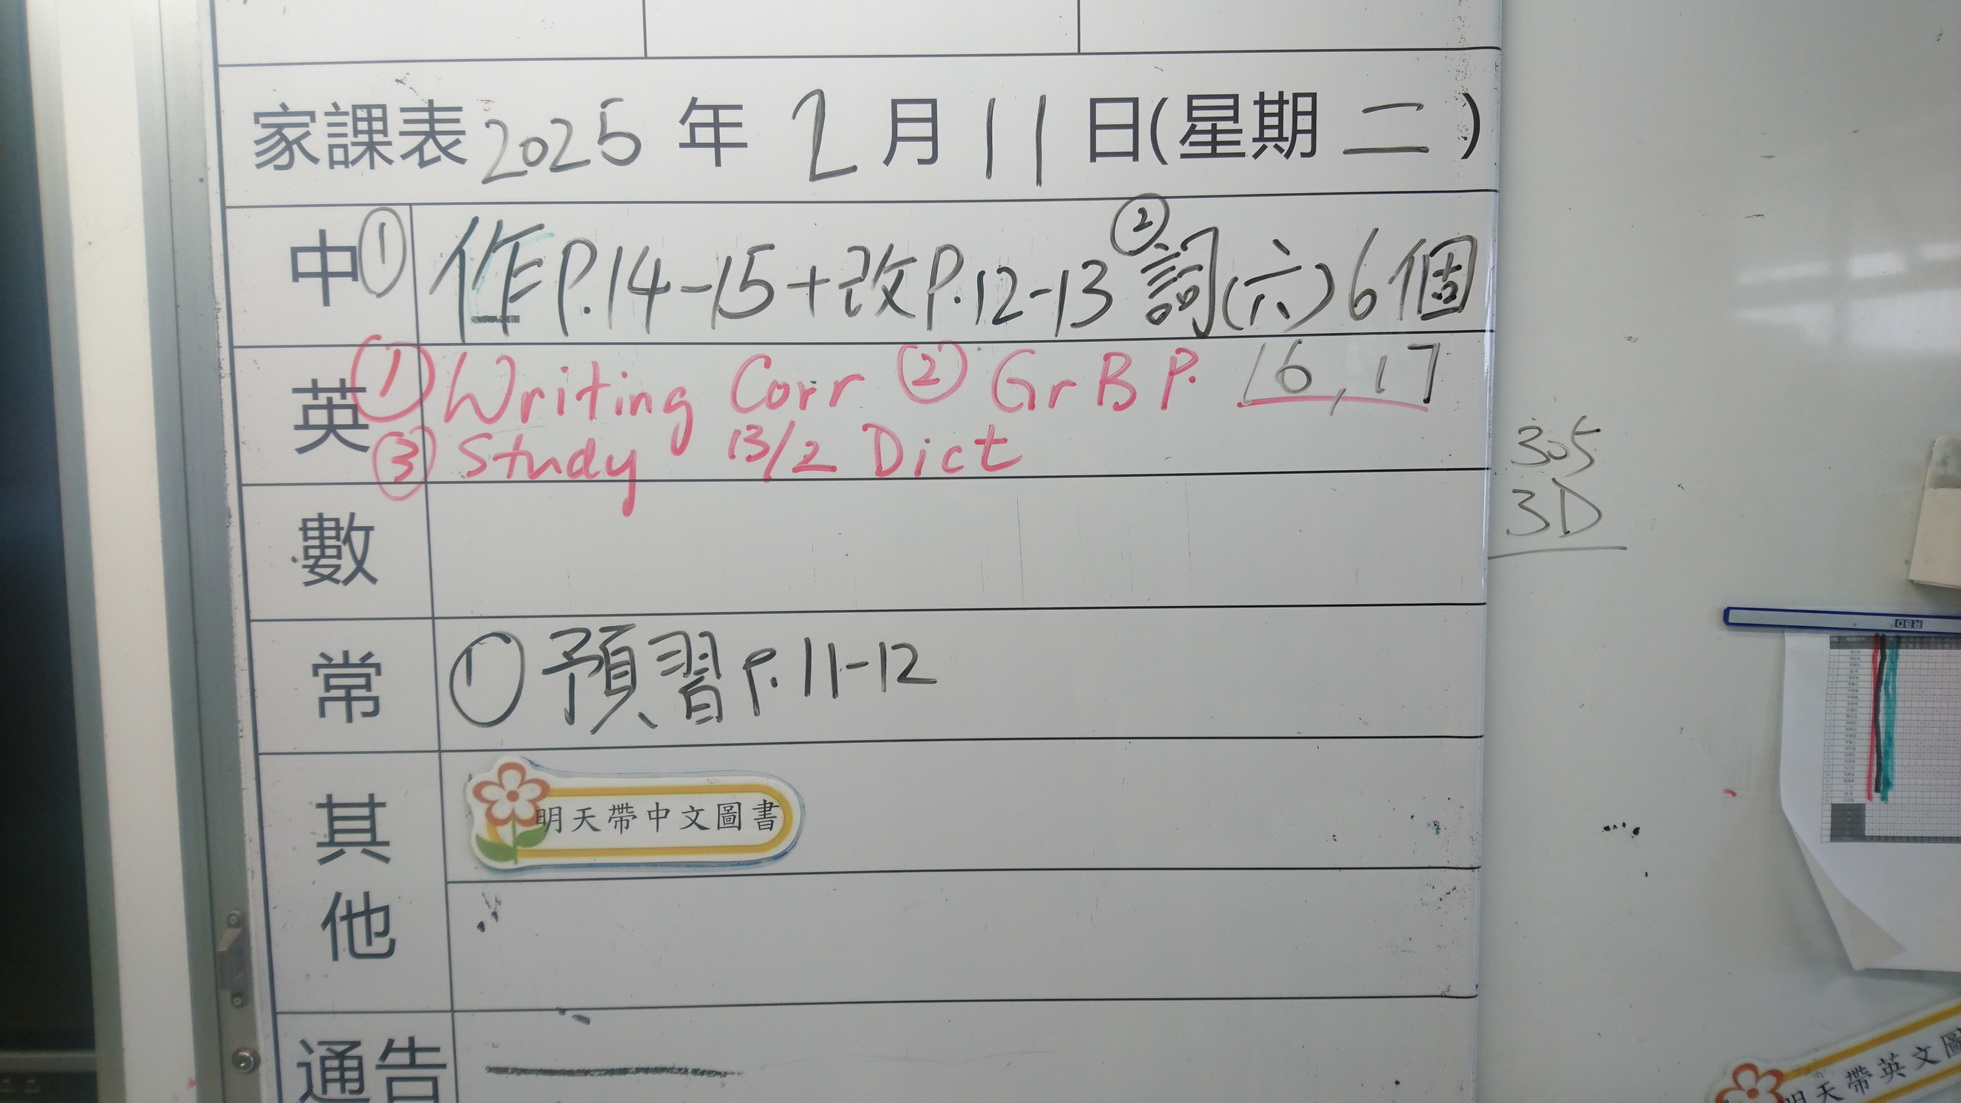 家課表 2025 年 2 月 11 日(星期 二)
中 ① 作P.14-15+改P.12-13 ②詞(六)6個
英 ① Writing Corr ② GrB P. 16,17
③ Study 13/2 Dict
305
3D
數
常 ① 預習 P.11-12
其他 明天帶中文圖書
通告
明天帶英文圖